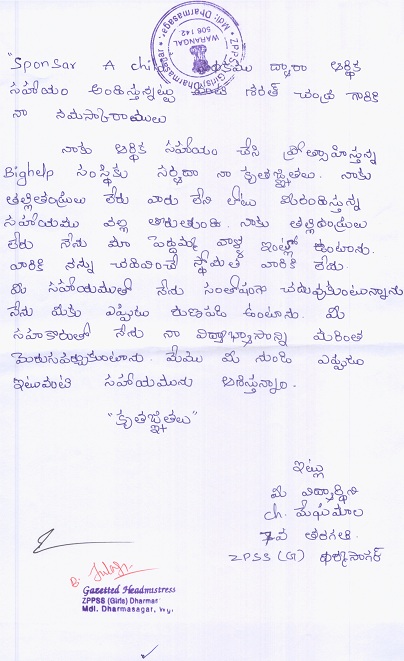 ZPPSS (Girls) Dharmasagar
Mdl: Dharmasagar.
WARANGAL
506 142.
"Sponsar A child పథకము ద్వారా ఆర్థిక
సహాయం అందిస్తున్నట్టు శరత్ చంద్ర గారికి
నా నమస్కారములు
నాకు ఆర్థిక సహాయం చేసి ప్రోత్సాహిస్తున్న
Bighelp సంస్థకు సర్వదా నా కృతజ్ఞతలు. నాకు
తల్లితండ్రులు లేరు వారు లేని లోటు మీరందిస్తున్న
సహాయము వల్ల తీరుతుంది. నాకు తల్లితండ్రులు
లేరు నేను మా పెద్దమ్మ వాళ్ళ ఇంట్లో ఉంటాను.
వారికి నన్ను చదివించే స్థోమత వారికి లేదు.
మీ సహాయముతో నేను సంతోషంగా చదువుకుంటున్నాను
నేను మీకు ఎప్పుడు రుణపడి ఉంటాను. మీ
సహకారంతో నేను నా విద్యాభ్యాసాన్ని మరింత
మెరుగుపర్చుకుంటాను. మేము మీ నుండి ఎప్పుడు
ఇలాంటి సహాయమును ఆశిస్తున్నాం.
"కృతజ్ఞతలు"
ఇట్లు
మీ విద్యార్థిని
ch. మేఘమాల
7వ తరగతి.
ZPSS (G) ధర్మసాగర్
Gazetted Headmistress
ZPPSS (Girls) Dharmar
Mdl. Dharmasagar, Wgl.